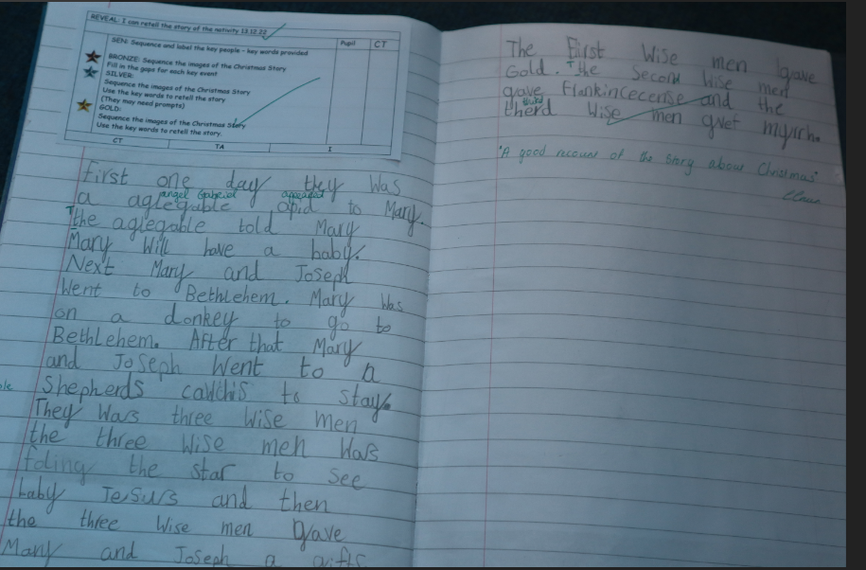 REVEAL: I can retell the story of the nativity 13.12.22
Pupil CT
SEN: Sequence and label the key people – key words provided
BRONZE: Sequence the images of the Christmas Story
Fill in the gaps for each key event
SILVER:
Sequence the images of the Christmas Story
Use the key words to retell the story
(They may need prompts)
GOLD:
Sequence the images of the Christmas Story
Use the key words to retell the story.
CT TA I
First one day they Was
angel Gabriel appeared
a aglegable apid to Mary.
The aglegable told Mary
Mary Will have a baby.
Next Mary and Joseph
Went to Bethlehem. Mary Was
on a donkey to go to
Bethlehem. After that Mary
and Joseph Went to a
Shepherds to stay.
They Was three Wise men
the three Wise men Was
foling the star to see
baby Jesurs and then
the three Wise men gave
Mary and Joseph a gifts
The First Wise men gave
Gold. The Second Wise men
gave and the
third
therd Wise men myrrh.
"A good recount of the story about Christmas"